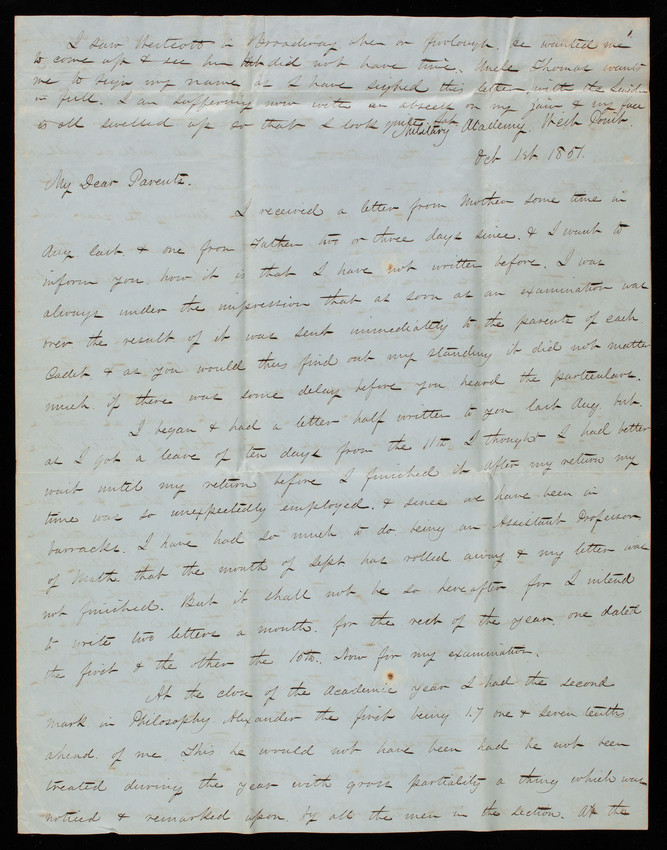 I saw Westcott in Broadway when on furlough. he wanted me
to come up & see him but did not have time. Uncle Thomas wants
me to sign my name as I have signed this letter, with the
in full. I am suffering now with an abscess on my jaw & my face
is all swelled up so that I look quite fat
Military Academy, West Point.
Oct 1st 1851.
My Dear Parents.
I received a letter from Mother some time in
Aug last & one from Father two or three days since. & I want to
inform you how it is that I have not written before. I was
always under the impression that as soon as an examination was
over the result of it was sent immediately to the parents of each
Cadet & as you would thus find out my standing it did not matter
much if there was some delay before you heard the particulars.
I began & had a letter half written to you last Aug. but
as I got a leave of ten days from the 11th I thought I had better
wait until my return before I finished it After my return my
time was so unexpectedly employed. & since we have been in
barracks. I have had so much to do being an Assistant Professor
of Math. that the month of Sept has rolled away & my letter was
not finished. But it shall not be so hereafter for I intend
to write two letters a month. for the rest of the year, one dated
the first & the other the 15th. Now for my examination.
At the close of the Academic year I had the second
mark in Philosophy Alexander the first being 1.7 one & seven tenths
ahead of me This he would not have been had he not been
treated during the year with gross partiality a thing which was
noticed & remarked upon by all the men in the section. At the